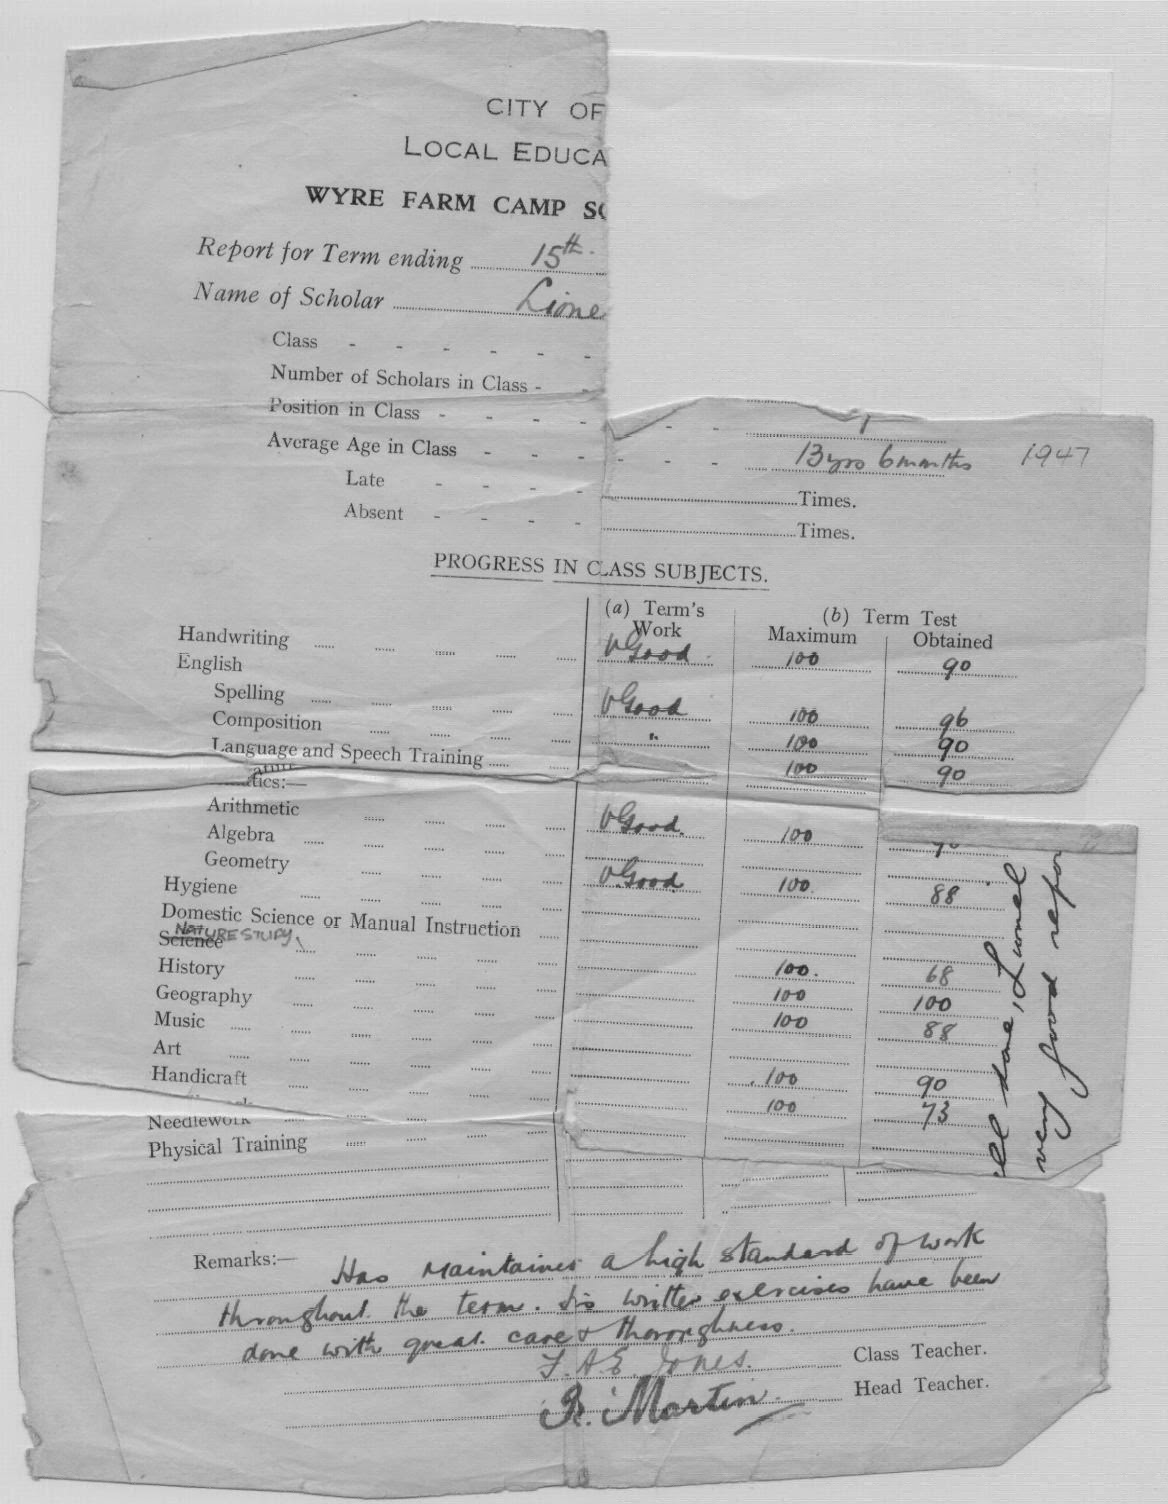 CITY OF
LOCAL EDUCA
WYRE FARM CAMP SC
Report for Term ending 15th.
Name of Scholar Lione
Class
Number of Scholars in Class
Position in Class 1
Average Age in Class 13 yrs 6 months 1947
Late Times.
Absent Times.
PROGRESS IN CLASS SUBJECTS.
(a) Term's Work (b) Term Test
Maximum Obtained
Handwriting V Good 100 90
English
Spelling V Good 100 96
Composition " 100 90
Language and Speech Training 100 90
Arithmetic V Good. 100
Algebra
Geometry V Good 100 88
Hygiene
Domestic Science or Manual Instruction
Science NATURE STUDY 100. 68
History 100 100
Geography 100 88
Music
Art 100 90
Handicraft 100 73
Needlework
Physical Training
ll done, Lionel
very good repor
Remarks:— Has maintained a high standard of work
throughout the term. His written exercises have been
done with great care & thoroughness.
F. A. E Jones. Class Teacher.
R. Martin. Head Teacher.